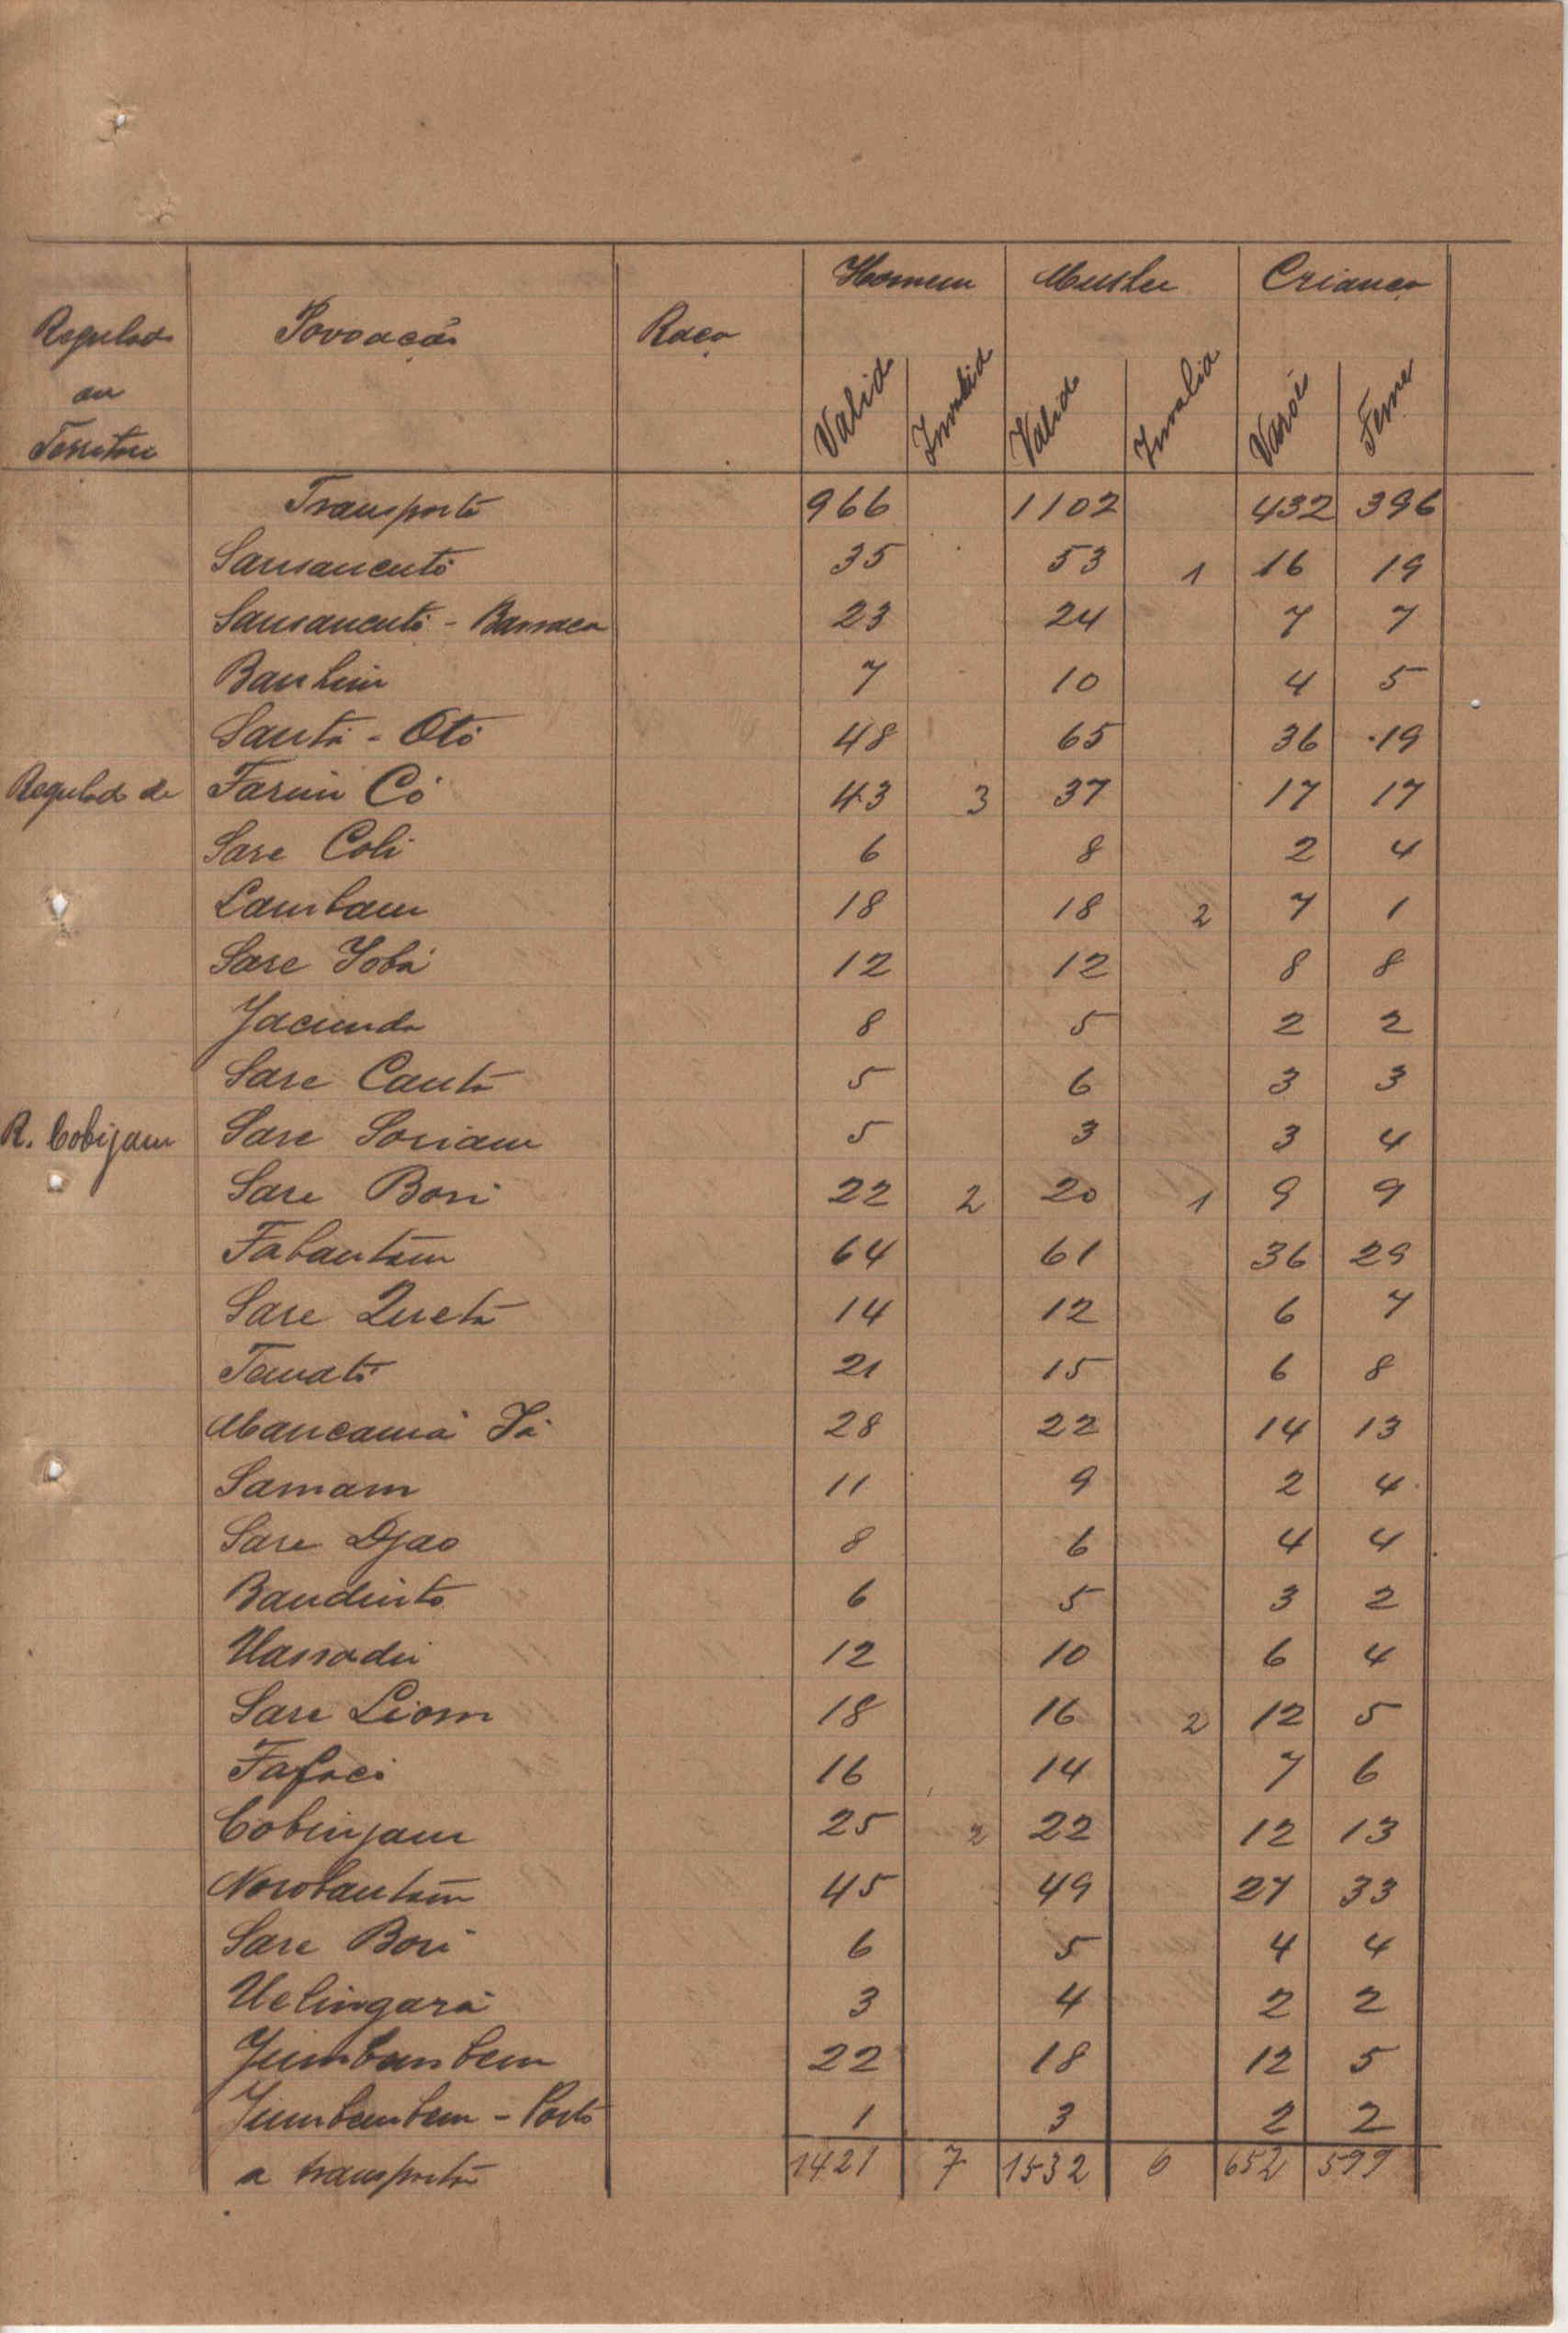 Homem Mulher Criança
Regulado Povoação Raça
ou
Territorio
Valid Invalid Valid Invalid Varões Feme
Transporte 966 1102 432 396
Sansancutó 35 53 1 16 19
Sansancutó - Barraca 23 24 7 7
Banhim 7 10 4 5
Santa - Otó 48 65 36 19
Regulado de Farim Có 43 3 37 17 17
Sare Coli 6 8 2 4
Lambam 18 18 2 7 1
Sare Iobá 12 12 8 8
Jacunda 8 5 2 2
Sare Canta 5 6 3 3
R. Cobijam Sare Soriam 5 3 3 4
Sare Bori 22 2 20 1 9 9
Fabantam 64 61 36 29
Sare Queta 14 12 6 7
Tamató 21 15 6 8
Mancamá Iá 28 22 14 13
Samam 11 9 2 4
Sare Djao 8 6 4 4
Bandinto 6 5 3 2
Uassadu 12 10 6 4
Sare Liom 18 16 2 12 5
Fafaci 16 14 7 6
Cobinjam 25 2 22 12 13
Norobantam 45 49 27 33
Sare Bori 6 5 4 4
Uelingará 3 4 2 2
Jumbambem 22 18 12 5
Jumbembem - Porto 1 3 2 2
a transportar 1421 7 1532 6 652 599